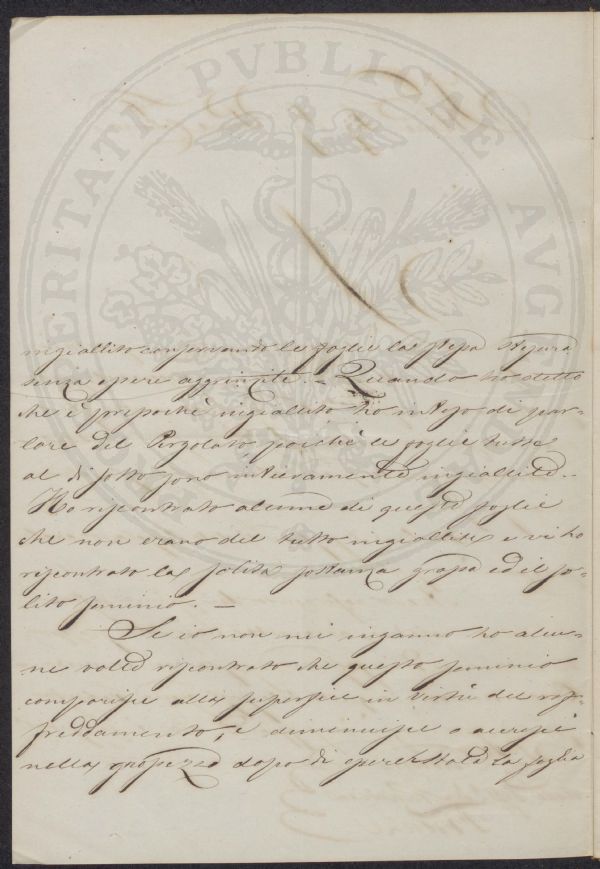 PERITATI PVBLICAE AVG
ingiallito conservando le foglie la stessa
senza essere aggrinzite. – Quando ho detto
che è pressoché ingiallito ho inteso di par-
lare del Pergolato, poiché le foglie tutte
al di sotto sono intieramente ingiallite. –
Ho riscontrato alcune di queste foglie
che non erano del tutto ingiallite e vi ho
riscontrato la solita sostanza grassa ed il so-
lito seminio. –
Se io non mi inganno ho alcu-
ne volte riscontrato che questo seminio
comparisce alla superficie in virtù del raf-
freddamento, e diminuisce o accresce
nella grossezza dopo di essere stata la foglia